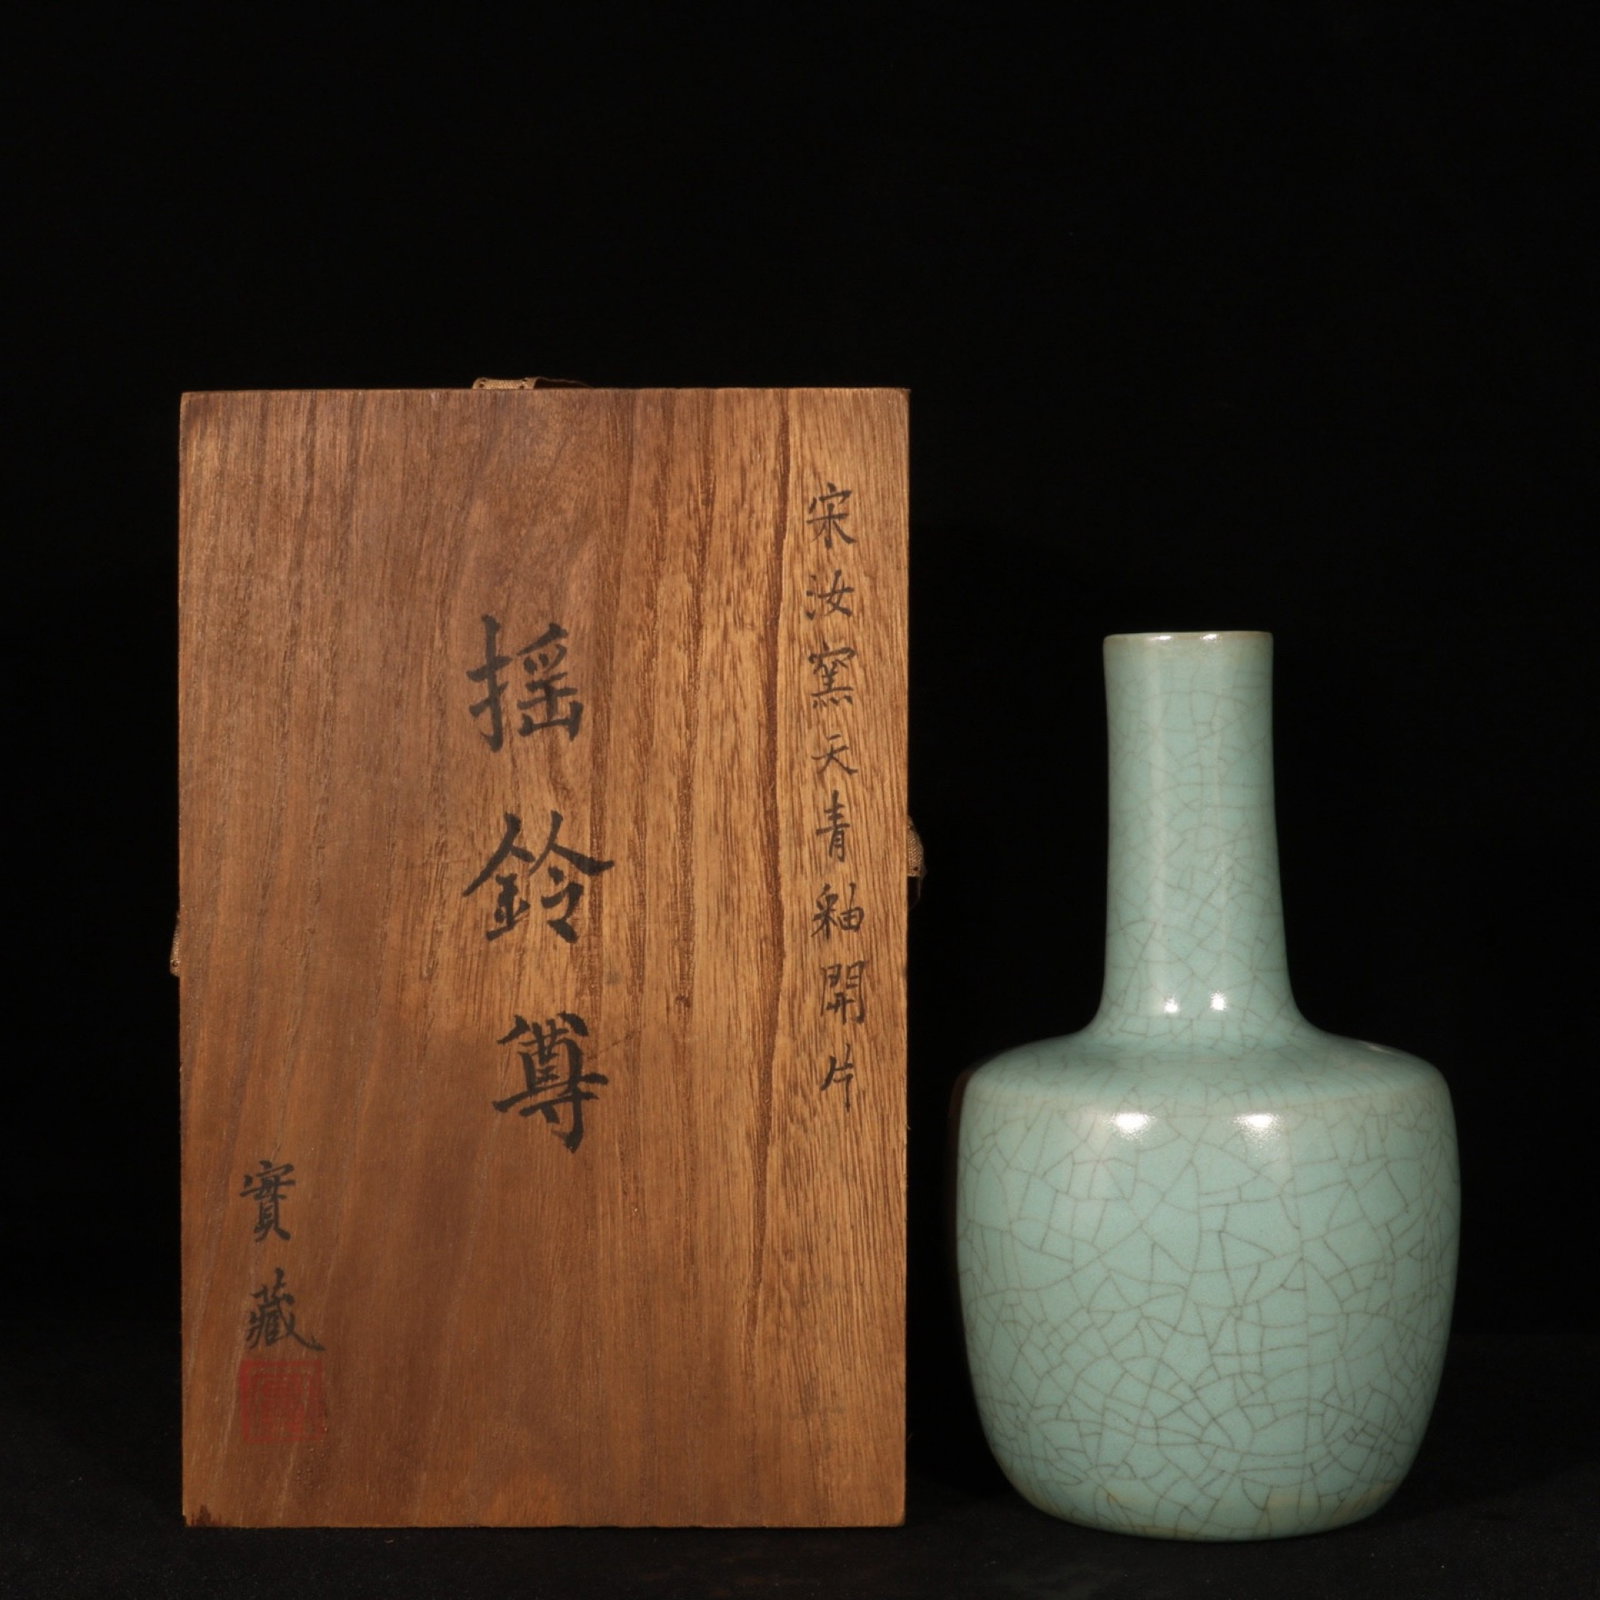 宋汝窯天青釉開片
摇鈴尊
寳藏